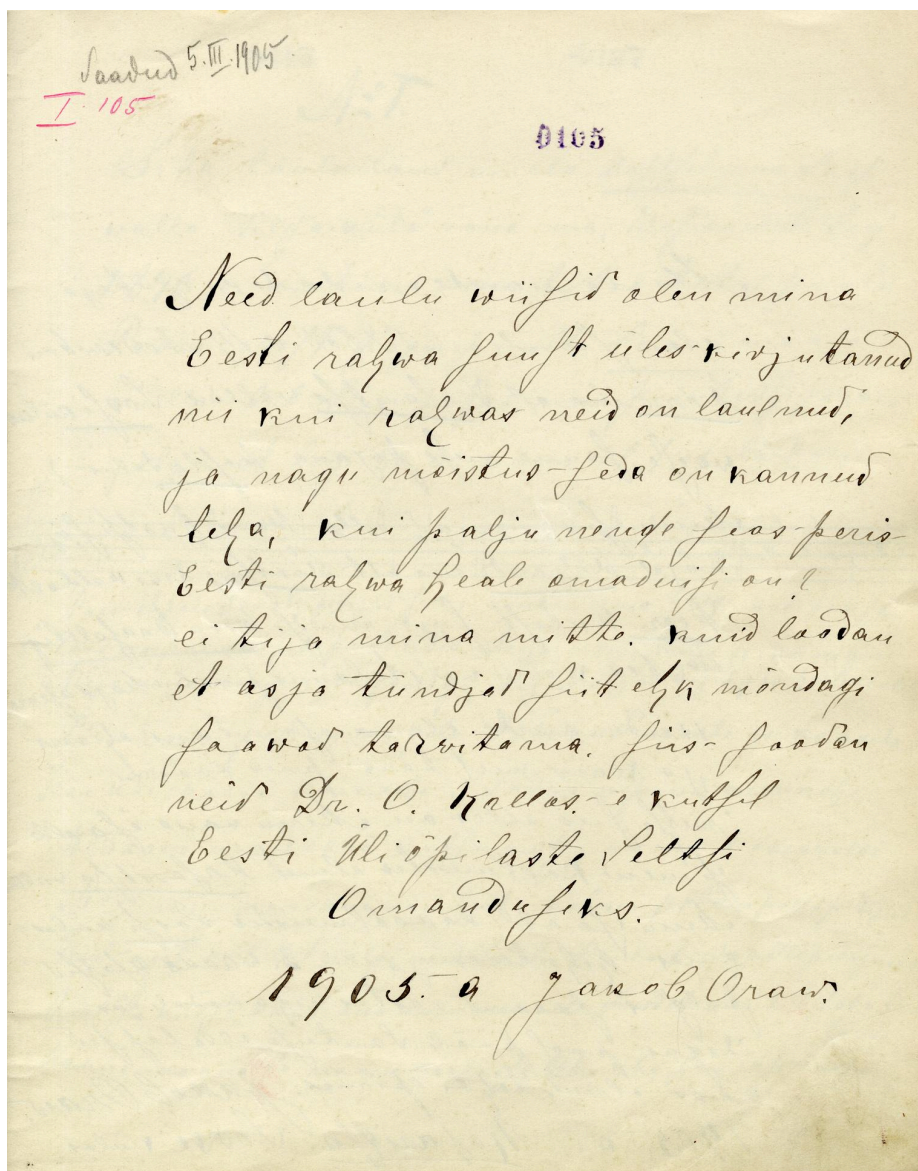 Saadud 5.III.1905.
I 105
0105
Need laulu wiisid olen mina
Eesti rahwa suust üles kirjutanud
nii kui rahwas neid on laulnud,
ja nagu mõistus seda on kannud
teha, kui palju nende seas peris
Eesti rahwa heale omadusi on?
ei tija mina mitte. kuid loodan
et asja tundjad siit ehk mõndagi
saawad tarwitama. siis saadan
neid Dr. O. Kallas.-e kutsel
Eesti Üliõpilaste Seltsi
Omanduseks.
1905.-a Jakob Oraw.